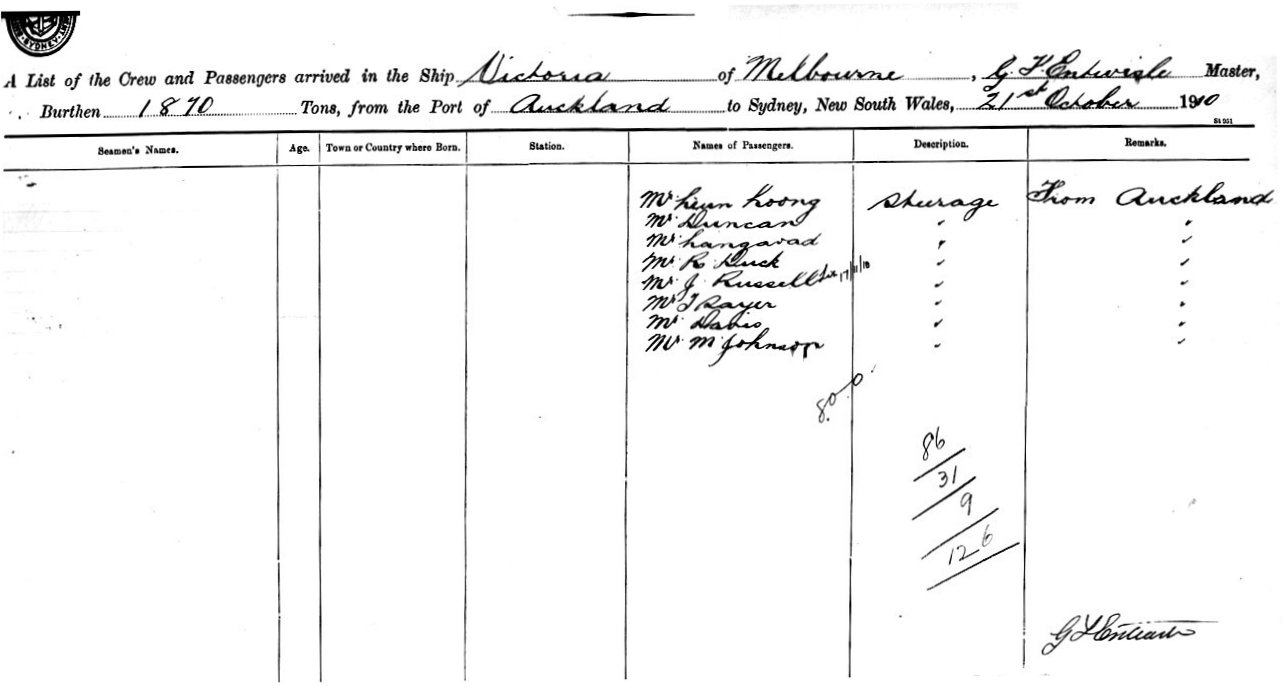 SYDNEY
A List of the Crew and Passengers arrived in the Ship Victoria of Melbourne, G. F. Entwisle Master,
Burthen 1870 Tons, from the Port of Auckland to Sydney, New South Wales, 21st October 1910
St 951
Seamen's Names. Age. Town or Country where Born. Station. Names of Passengers. Description. Remarks.
Mr Koong Steerage From Auckland
Mr Duncan " "
Mr " "
Mr R. Duck " "
Mr J Russell 17/11/10 " "
Mr T Sayer " "
Mr Davis " "
Mr M Johnson " "
8.0.0
86
31
9
126